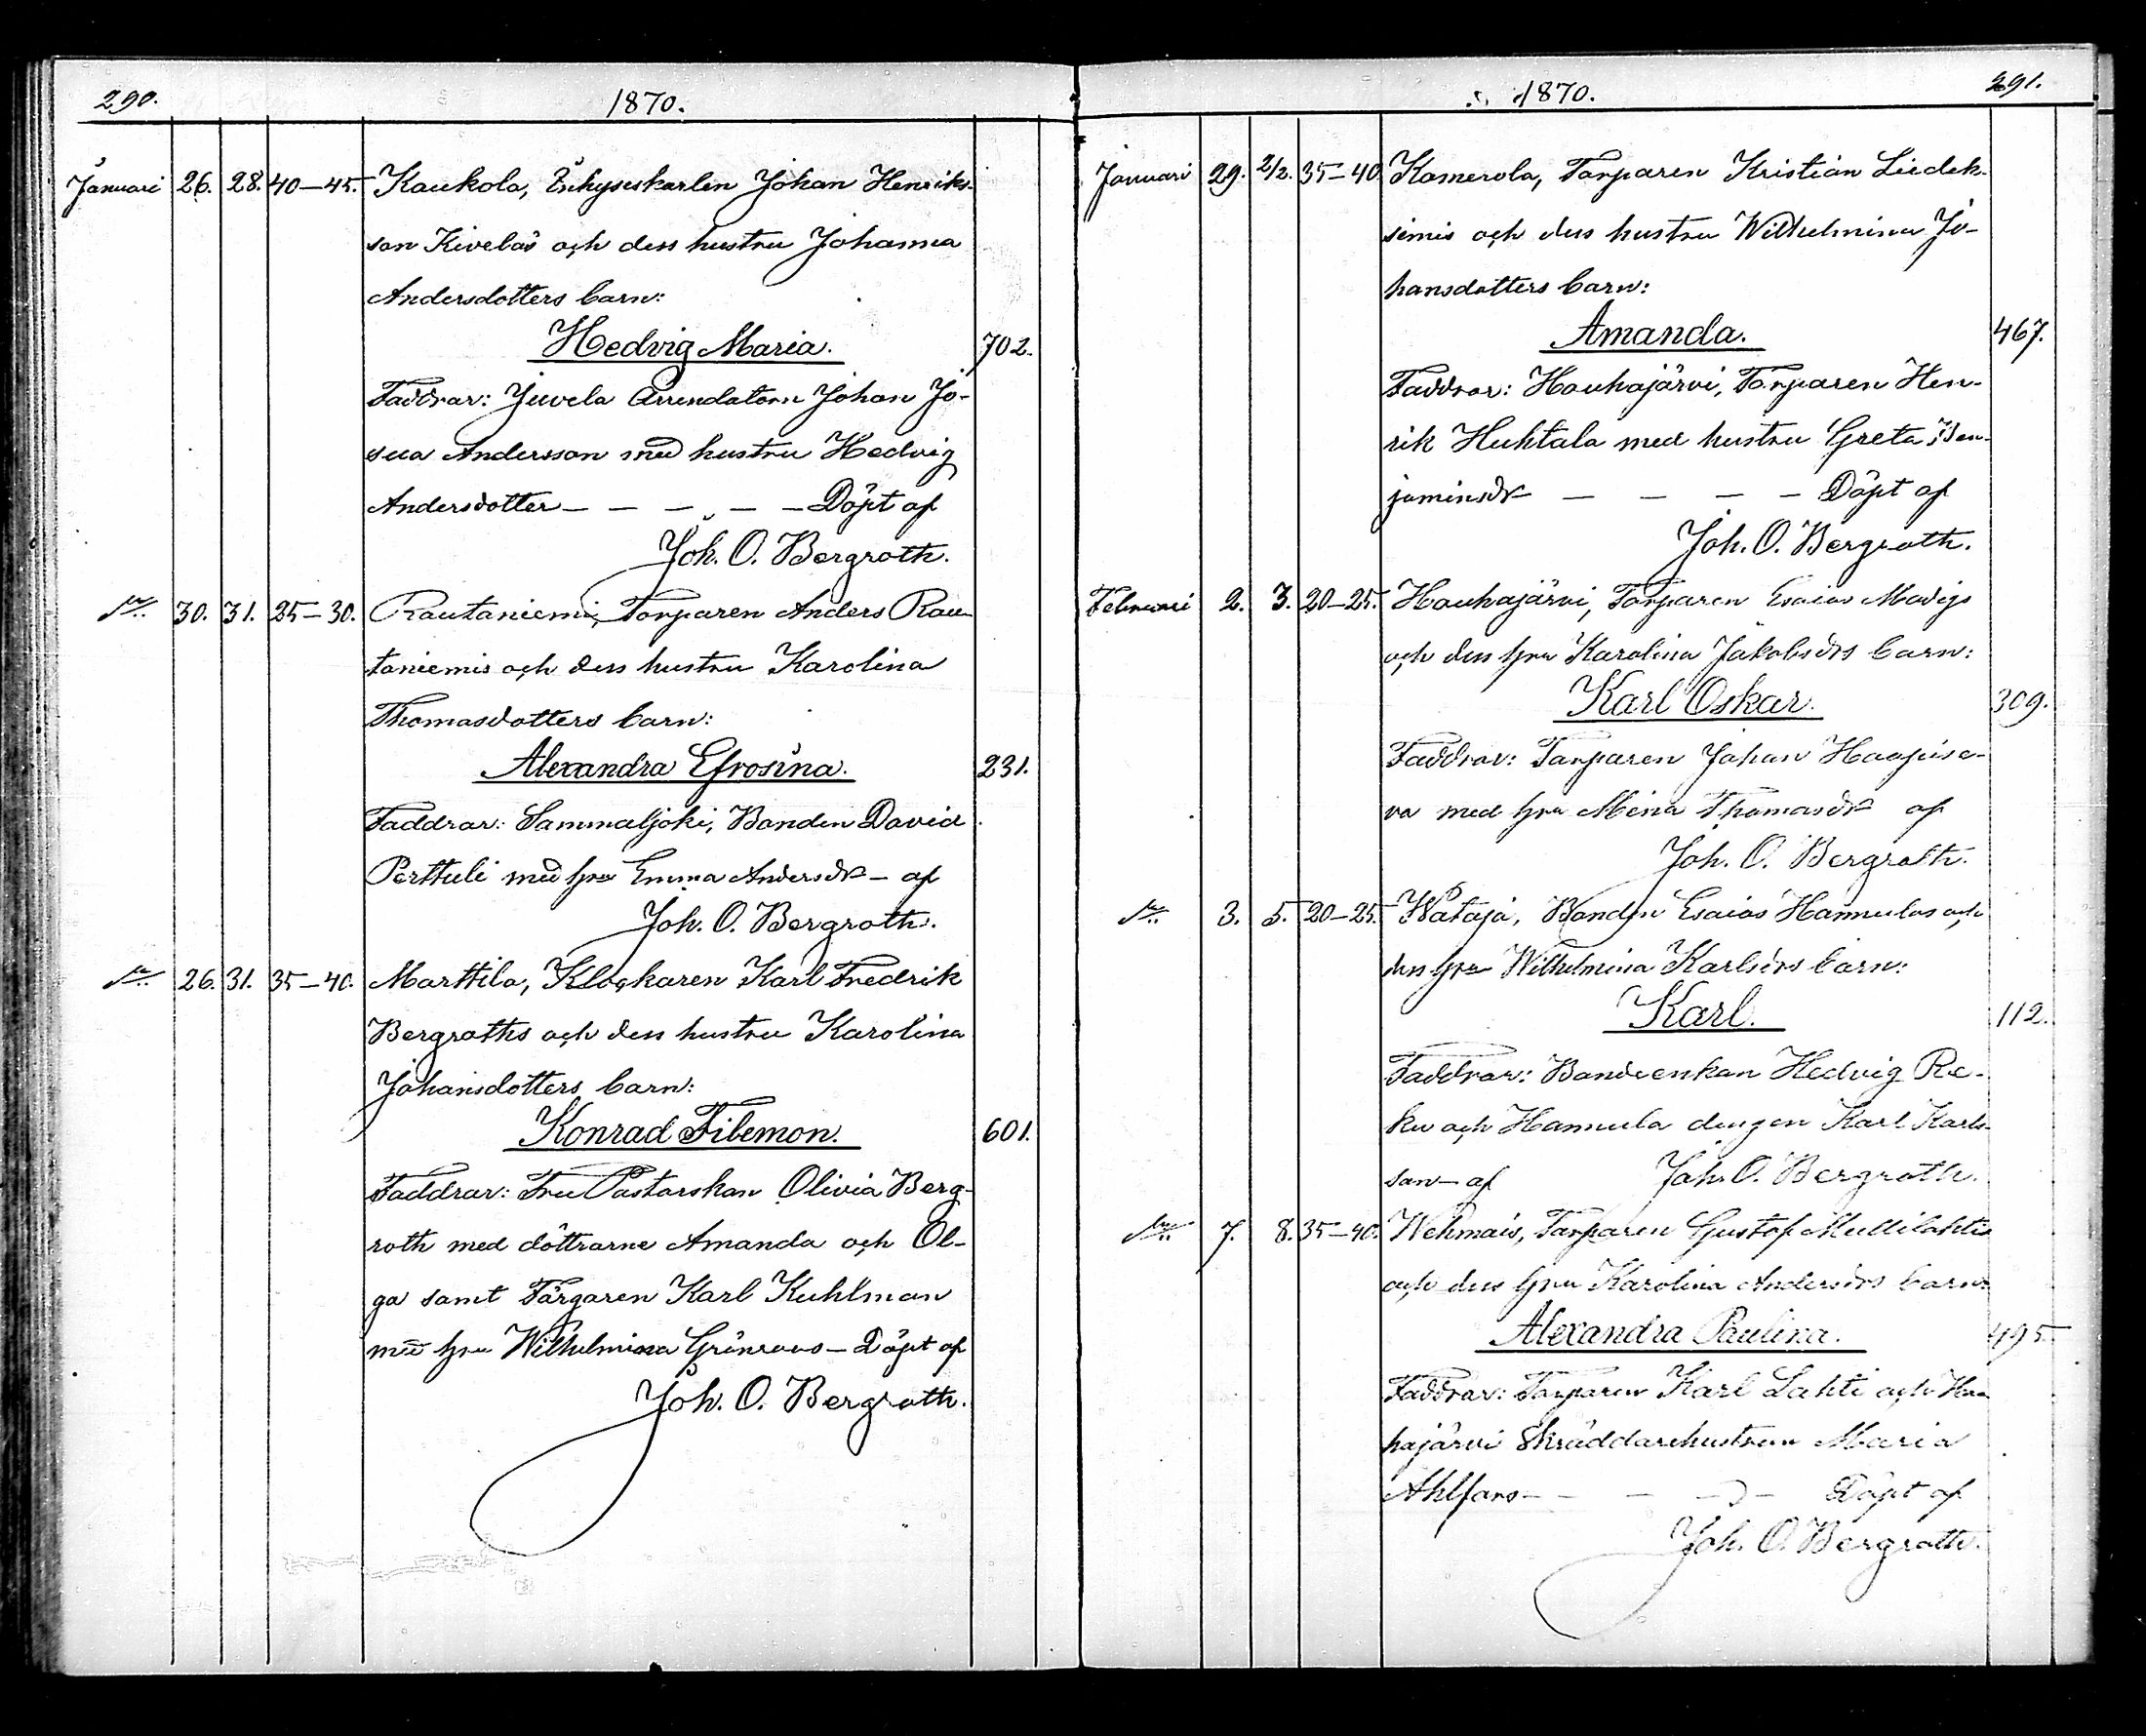 290.
1870.
Januari 26. 28. 40–45. Kaukola, Inhyseskarlen Johan Henriks-
son Kiveläs och dess hustru Johanna
Andersdotters barn:
Hedvig Maria. 702.
Faddrar: Juvela Arrendatorn Johan Jo-
sua Andersson med hustru Hedvig
Andersdotter – – – – – Döpt af
Joh. O. Bergroth.
30. 31. 25–30. Rautaniemi, Torparen Anders Rau-
taniemis och dess hustru Karolina
Thomasdotters barn:
Alexandra Efrosina. 231.
Faddrar: Sammaljoki, Bonden David
Perttuli med hru Emma Andersdr – af
Joh. O. Bergroth.
26. 31. 35–40. Marttila, Klockaren Karl Fredrik
Bergroths och dess hustru Karolina
Johansdotters barn:
Konrad Filemon. 601.
Faddrar: Fru Pastorskan Olivia Berg-
roth med döttrarne Amanda och Ol-
ga samt Färgaren Karl Kuhlman
med hru Wilhelmina Grönroos – Döpt af
Joh. O. Bergroth.
1870.
291.
Januari 29. 2/2. 35–40. Kamerola, Torparen Kristian Liedek-
simis och dess hustru Wilhelmina Jo-
hansdotters barn:
Amanda. 467.
Faddrar: Houhajärvi, Torparen Hen-
rik Huhtala med hustru Greta Ben-
jaminsdr – – – – Döpt af
Joh. O. Bergroth.
Februari 2. 3. 20–25. Houhajärvi, Torparen Esaias
och dess hru Karolina Jakobsdrs barn:
Karl Oskar. 309.
Faddrar: Torparen Johan Haapise-
va med hru Mina Thomasdr af
Joh. O. Bergroth.
3. 5. 20–25. Kataja, Bonden Esaias Hannulas och
dess hru Wilhelmina Karlsdrs barn:
Karl. 112.
Faddrar: Bondeenkan Hedvig Re-
ku och Hannula drengen Karl Karls-
son – af Joh. O. Bergroth.
7. 8. 35–40. Wehmais, Torparen Gustaf Mullilahtis
och dess hru Karolina Andersdrs barn:
Alexandra Paulina. 495
Faddrar: Torparen Karl Lahti och Hou-
hajärvi Skräddarehustrun Maria
Ahlfors – – – – Döpt af
Joh. O. Bergroth.